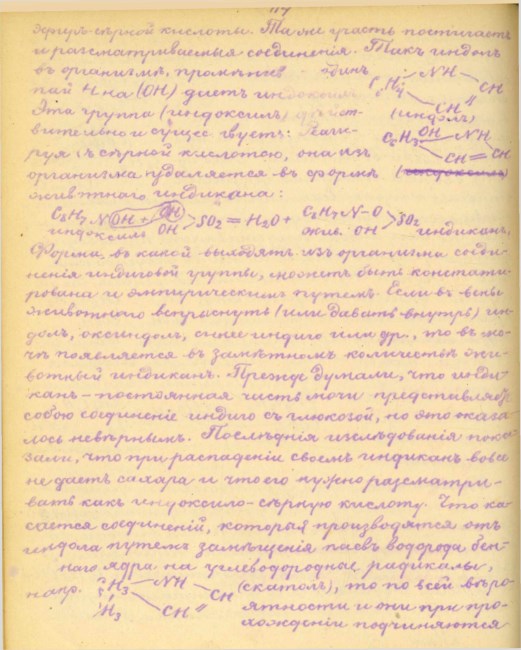 117
кислоты. Та же участь постигаетъ
и разсматриваемыя соединенія. Такъ индолъ
въ организмѣ, промѣнявъ одинъ
пай H на (OH) даетъ индоксилъ NH CH
Эта группа (индоксилъ) CH (индолъ)
вительно существуетъ: OH NH
руя съ сѣрной кислотою, она изъ CH = CH
организма удаляется въ формѣ (индоксилъ)
животнаго индикана:
C8H7 N OH + OH > SO2 = H2O + C8H7 N-O > SO2
индоксилъ OH жив. OH индиканъ.
Форма, въ какой выходятъ изъ организма соеди-
ненія индиговой группы, можетъ быть констати-
рована и эмпирическимъ путемъ. Если въ вены
животнаго вспрыснуть (или давать внутрь) ин-
долъ, оксиндолъ, синее индиго или др., то въ мо-
чѣ появляется въ замѣтномъ количествѣ жи-
вотный индиканъ. Прежде думали, что инди-
канъ - постоянная часть мочи представляетъ
собою соединеніе индиго съ глюкозой, но это оказа-
лось невѣрнымъ. Послѣднія изслѣдованія пока-
зали, что при распаденіи своемъ индиканъ вовсе
не даетъ сахара и что его нужно разсматри-
вать какъ индоксило-сѣрную кислоту. Что ка-
сается соединеній, которыя производятся отъ
индола путемъ замѣщенія паевъ водорода бен-
наго ядра на углеводородные радикалы,
напр. H3 NH CH (скатолъ), то по всей вѣро-
H3 CH ятности и они при про-
хожденіи подчиняются